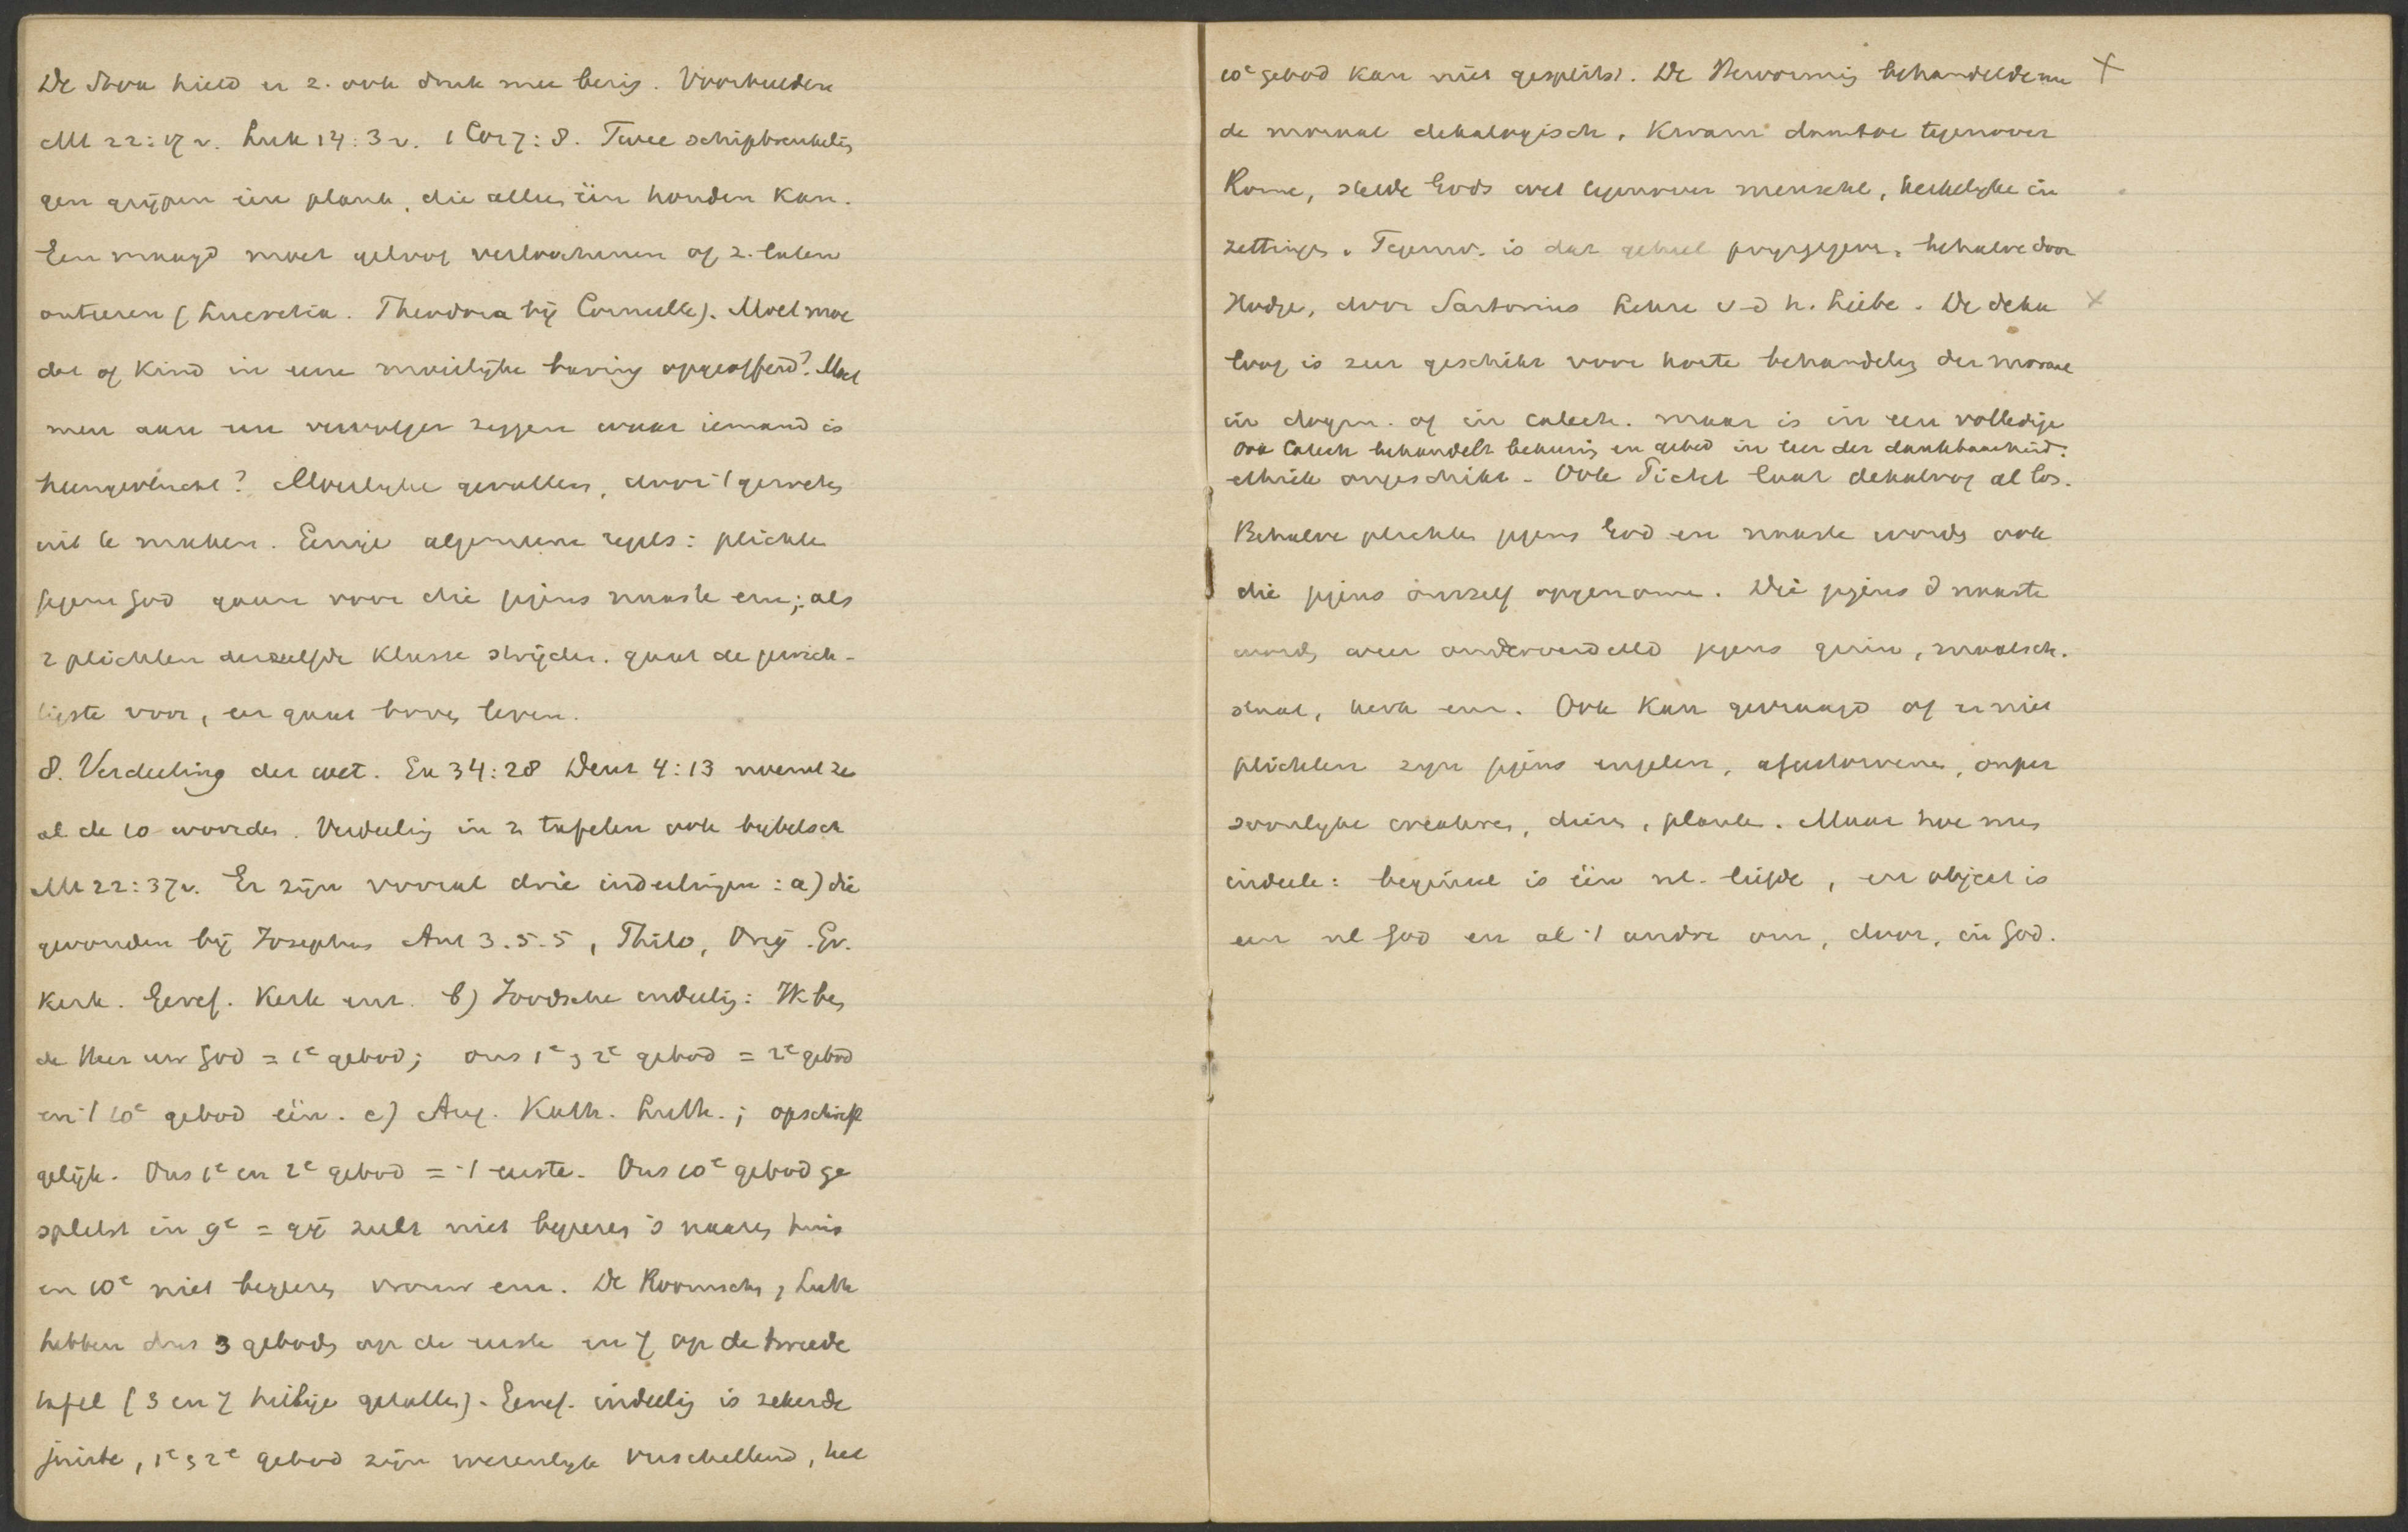 De Stoa hield er z. ook druk mee bezig. Voorbeelden
Mt 22:17 v. Luk 14:3 v. 1 Cor 7:8. Twee schipbreukelin
gen grijpen een plank, die alleen één houden kan.
Een maagd moet geloof verloochenen of z. laten
onteeren (Lucretia. Theodora bij Corneille). Moet moe
der of kind in eene moeilijke baring opgeofferd? Moet
men aan een vervolger zeggen waar iemand is
heengevlucht? Moeilijke gevallen, door 't geweten
uit te maken. Eenige algemeene regels: plichten
jegens God gaan voor die jegens naaste enz; als
2 plichten derzelfde klasse strijden. gaat de gewich-
tigste voor, eer gaat boven leven.
8. Verdeeling der wet. Ex 34:28 Deut 4:13 noemt ze
al de 10 woorden. Verdeeling in 2 tafelen ook bijbelsch
Mt 22:37 v. Er zijn vooral drie indeelingen: a) die
gevonden bij Josephus Ant 3.5.5, Philo, Orig. Gr.
Kerk. Geref. Kerk enz. b) Joodsche indeeling: Ik ben
de Heer uw God = 1e gebod; ons 1e en 2e gebod = 2e gebod
en 't 10e gebod één. c) Aug. Kath. Luth.; opschrift
gelijk. Ons 1e en 2e gebod = 't eerste. Ons 10e gebod ge
splitst in 9e = gij zult niet begeeren 's naasten huis
en 10e niet begeeren vrouw enz. De Roomschen, Luth
hebben dus 3 geboden op de eerste en 7 op de tweede
tafel (3 en 7 heilige getallen). Geref. indeeling is zeker de
juiste, 1e en 2e gebod zijn wezenlijk verschillend, het
10e gebod kan niet gesplitst. De Hervorming behandelde nu X
de moraal dekalogisch, kwam daartoe tegenover
Rome, stelde Gods wet tegenover menschel, kerkelijke in
zettingen. Tegenw. is dat geheel prijsgegeven, behalve door
Hodge, door Sartorius Lehre v d h. Liebe. De deka X
loog is zeer geschikt voor korte behandeling der moraal
in dogm. of in catech. maar is in een volledige
Ook Catech behandelt bekeering en gebed in leer der dankbaarheid.
ethiek ongeschikt - Ook Pictet laat dekaloog al los.
Behalve plichten jegens God en naaste worden ook
die jegens onszelf opgenomen. Die jegens d naaste
worden weer onderverdeeld jegens gezin, maatsch.
staat, kerk enz. Ook kan gevraagd of er niet
plichten zijn jegens engelen, afgestorvenen, onper
soonlijke creaturen, dieren, planten. Maar hoe men
indeele: beginsel is één nl. liefde, en object is
een nl God en al 't andre om, door, in God.